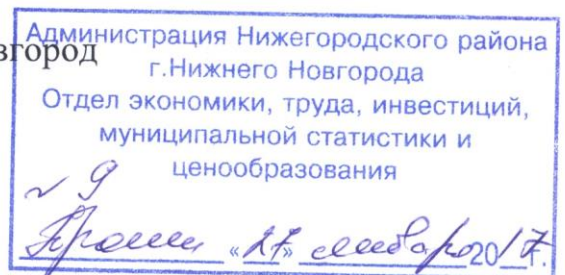 вгород
Администрация Нижегородского района
г.Нижнего Новгорода
Отдел экономики, труда, инвестиций,
муниципальной статистики и
ценообразования
№ 9
«27» января 2017г.